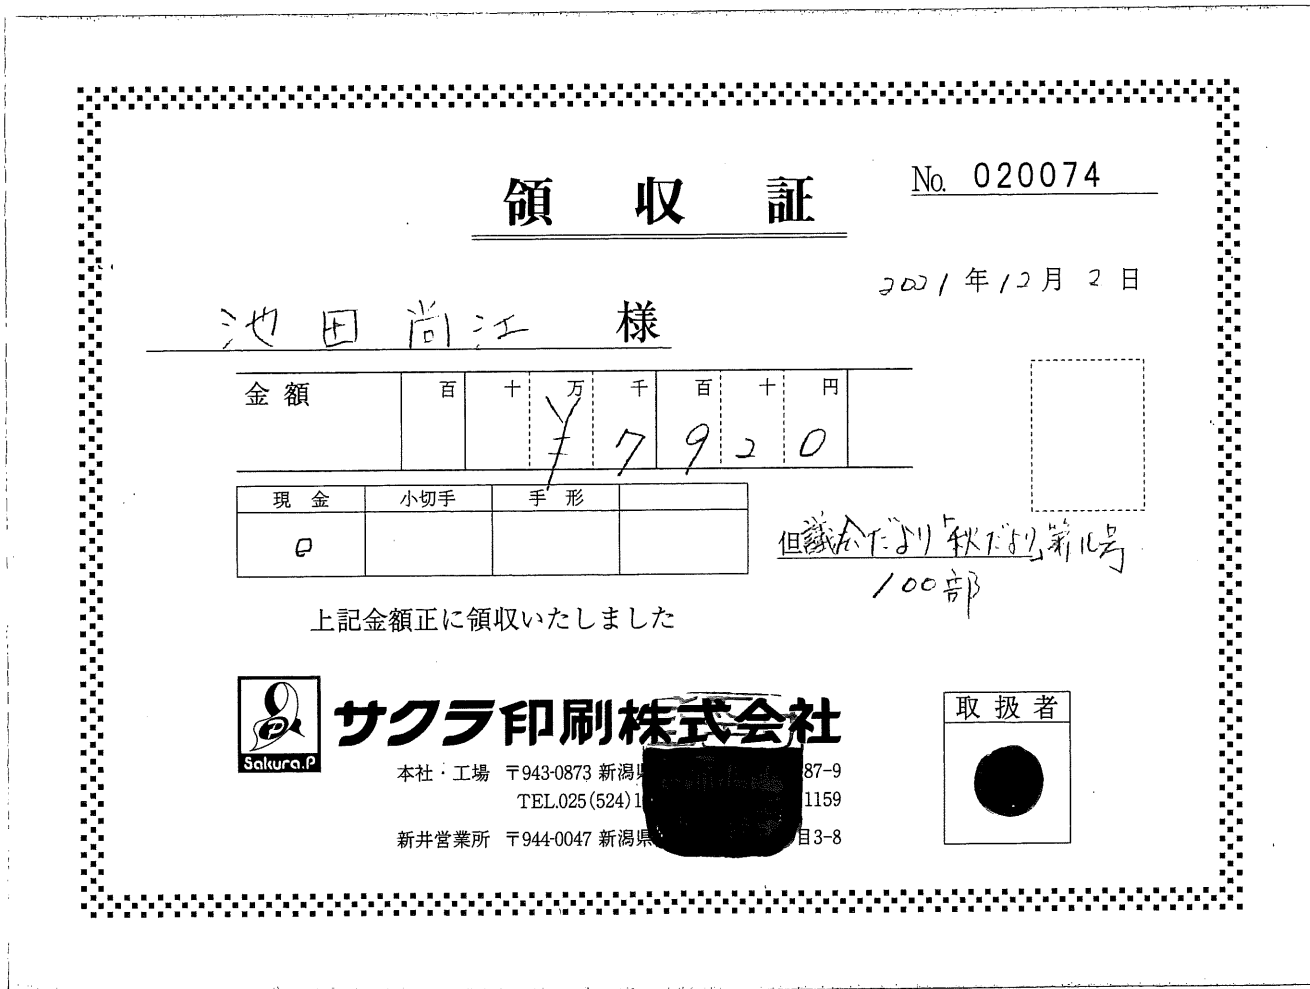 領収証
No. 020074
2021年12月2日
池田尚江 様
金額 百 十 万 千 百 十 円
¥7920
現金 小切手 手形
但議会だより「秋だより」第11号
100部
上記金額正に領収いたしました
Sakura.P
サクラ印刷株式会社
本社・工場 〒943-0873 新潟県 87-9
TEL.025(524)1 1159
新井営業所 〒944-0047 新潟県 目3-8
取扱者